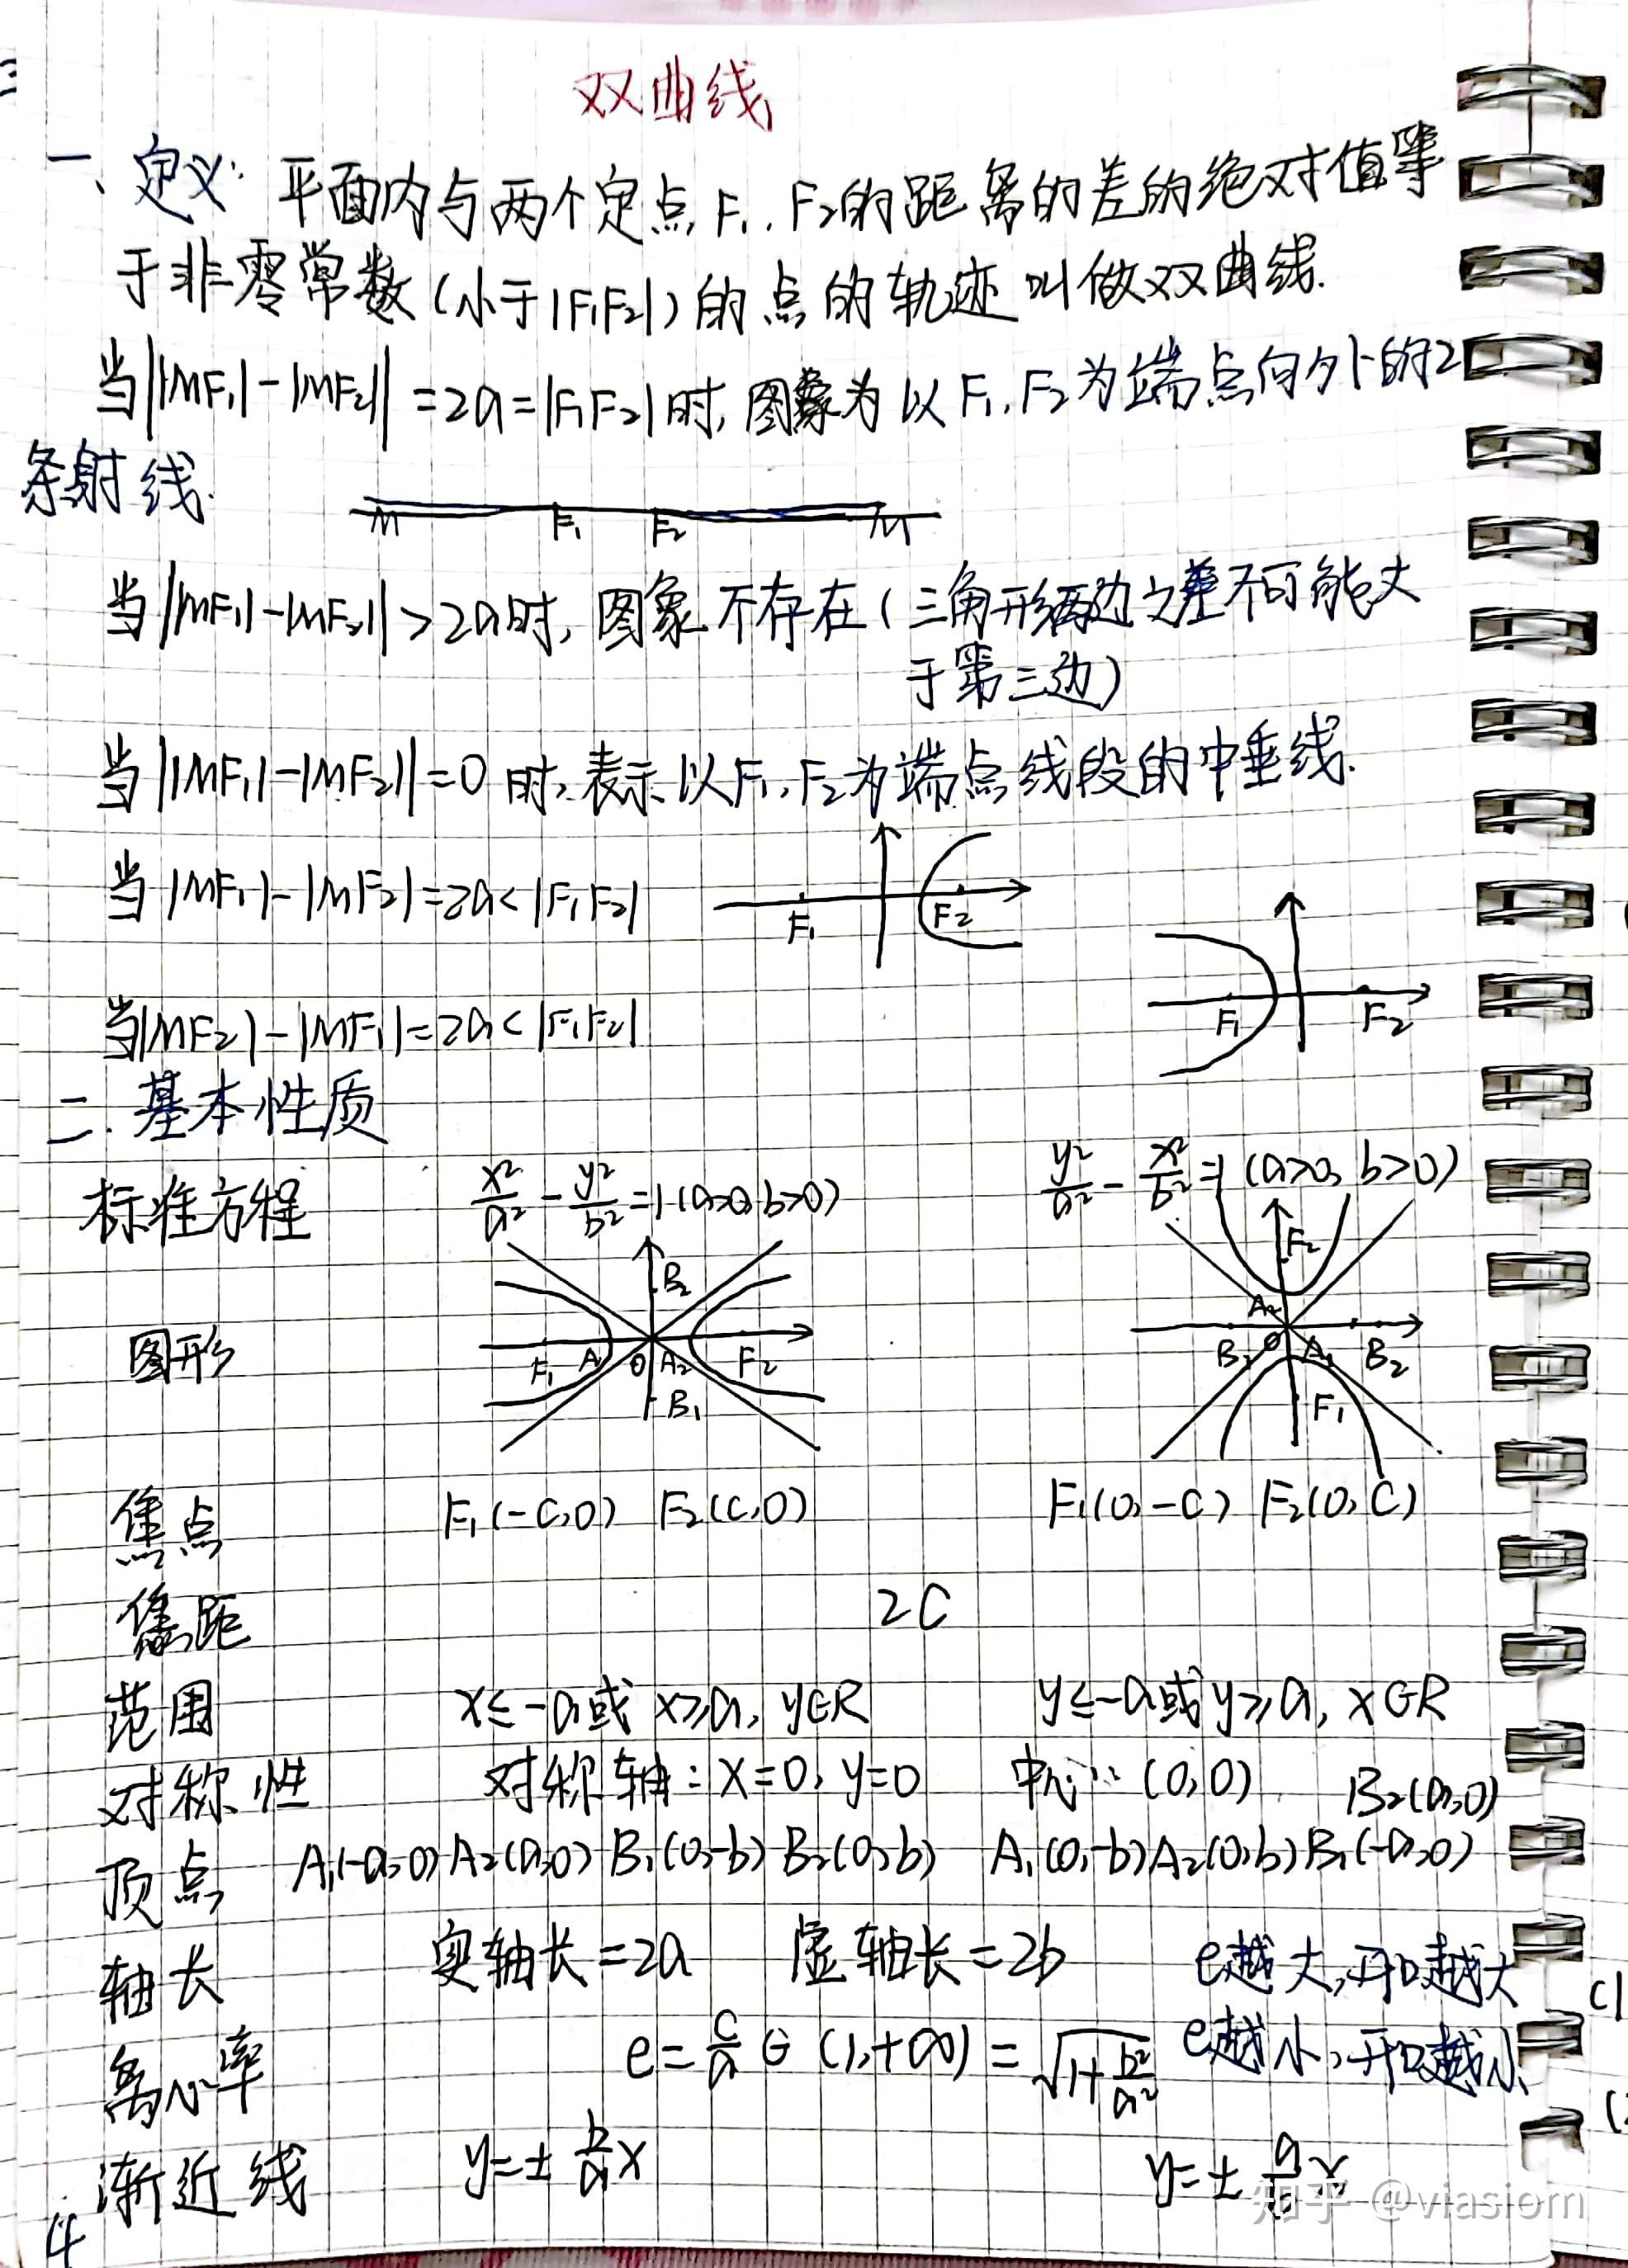 双曲线
一、定义: 平面内与两个定点F₁, F₂的距离的差的绝对值等
于非零常数(小于|F₁F₂|)的点的轨迹叫做双曲线.
当||MF₁|-|MF₂||=2a=|F₁F₂|时,图象为以F₁,F₂为端点向外的2
条射线.
M F₁ F₂ M
当||MF₁|-|MF₂||>2a时,图象不存在(三角形两边之差不可能大
于第三边)
当||MF₁|-|MF₂||=0时,表示以F₁,F₂为端点线段的中垂线.
当|MF₁|-|MF₂|=2a<|F₁F₂|
F₁ F₂
当|MF₂|-|MF₁|=2a<|F₁F₂|
F₁ F₂
二.基本性质
标准方程 x²/a² - y²/b²=1(a>0,b>0) y²/a² - x²/b²=1(a>0,b>0)
图形
B₂ F₁ A₁ O A₂ F₂ B₁
F₂ A₂ B₁ O A₁ B₂ F₁
焦点 F₁(-c,0) F₂(c,0) F₁(0,-c) F₂(0,c)
焦距 2c
范围 x≤-a或x≥a,y∈R y≤-a或y≥a,x∈R
对称性 对称轴:x=0,y=0 中心:(0,0) B₂(a,0)
顶点 A₁(-a,0)A₂(a,0)B₁(0,-b)B₂(0,b) A₁(0,-b)A₂(0,b)B₁(-a,0)
轴长 实轴长=2a 虚轴长=2b e越大,开口越大
离心率 e=c/a∈(1,+∞)=√(1+b²/a²) e越小,开口越小
渐近线 y=±b/a x y=±a/b x
4
知乎 @viasiom